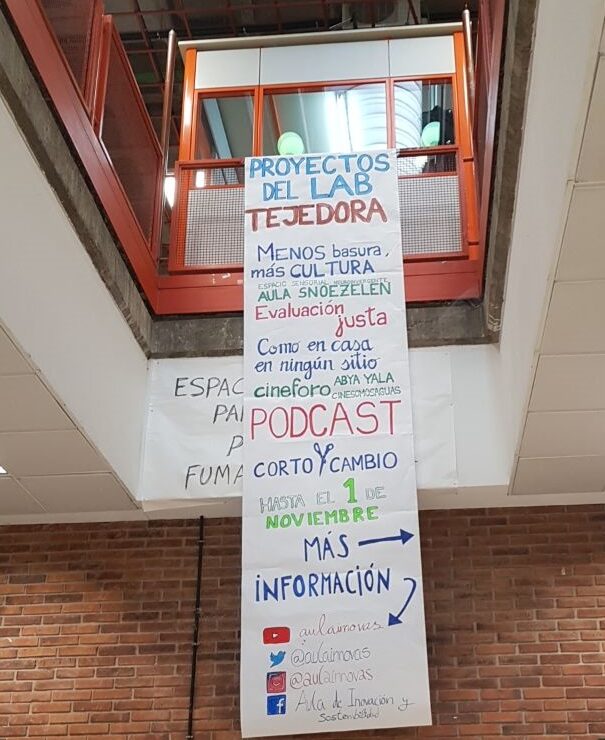 PROYECTOS
DEL LAB
TEJEDORA
MENOS basura,
más CULTURA
ESPACIO SENSORIAL NEURODIVERGENTE
AULA SNOEZELEN
Evaluación
justa
Como en casa
en ningún sitio
cineforo ABYA YALA
CINESOMOSAGUAS
PODCAST
CORTO Y CAMBIO
HASTA EL 1 DE
NOVIEMBRE
MÁS
INFORMACIÓN
aulainnovas
@aulainnovas
@aulainnovas
Aula de Inovación y
Sostenibilidad
ESPAC
PA
P
FUMA